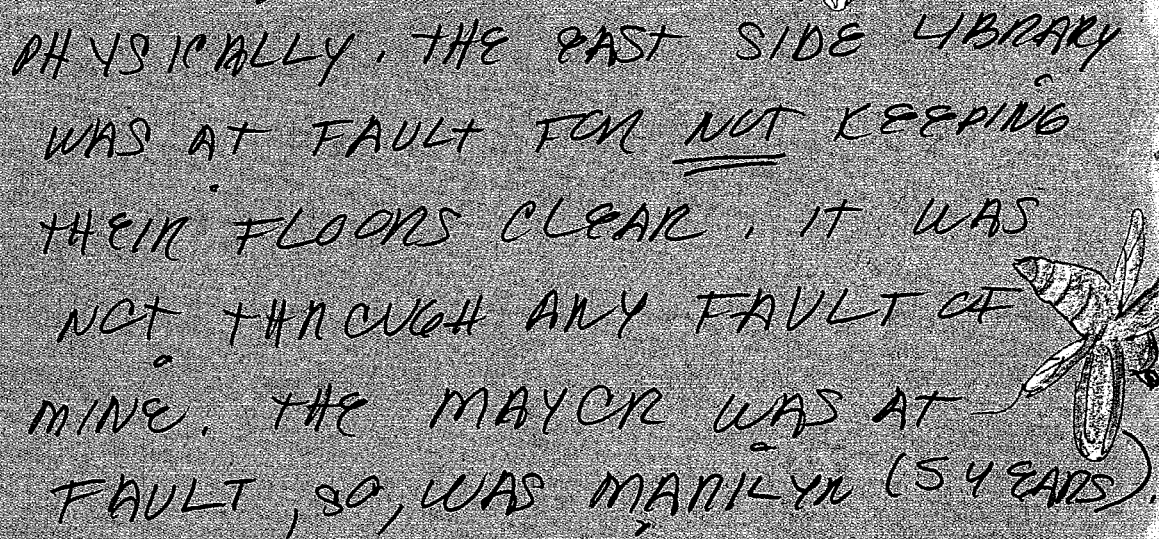 PHYSICALLY. THE EAST SIDE LIBRARY
WAS AT FAULT FOR NOT KEEPING
THEIR FLOORS CLEAR. IT WAS
NOT THROUGH ANY FAULT OF
MINE. THE MAYOR WAS AT
FAULT, SO, WAS MARILYN (5 YEARS).